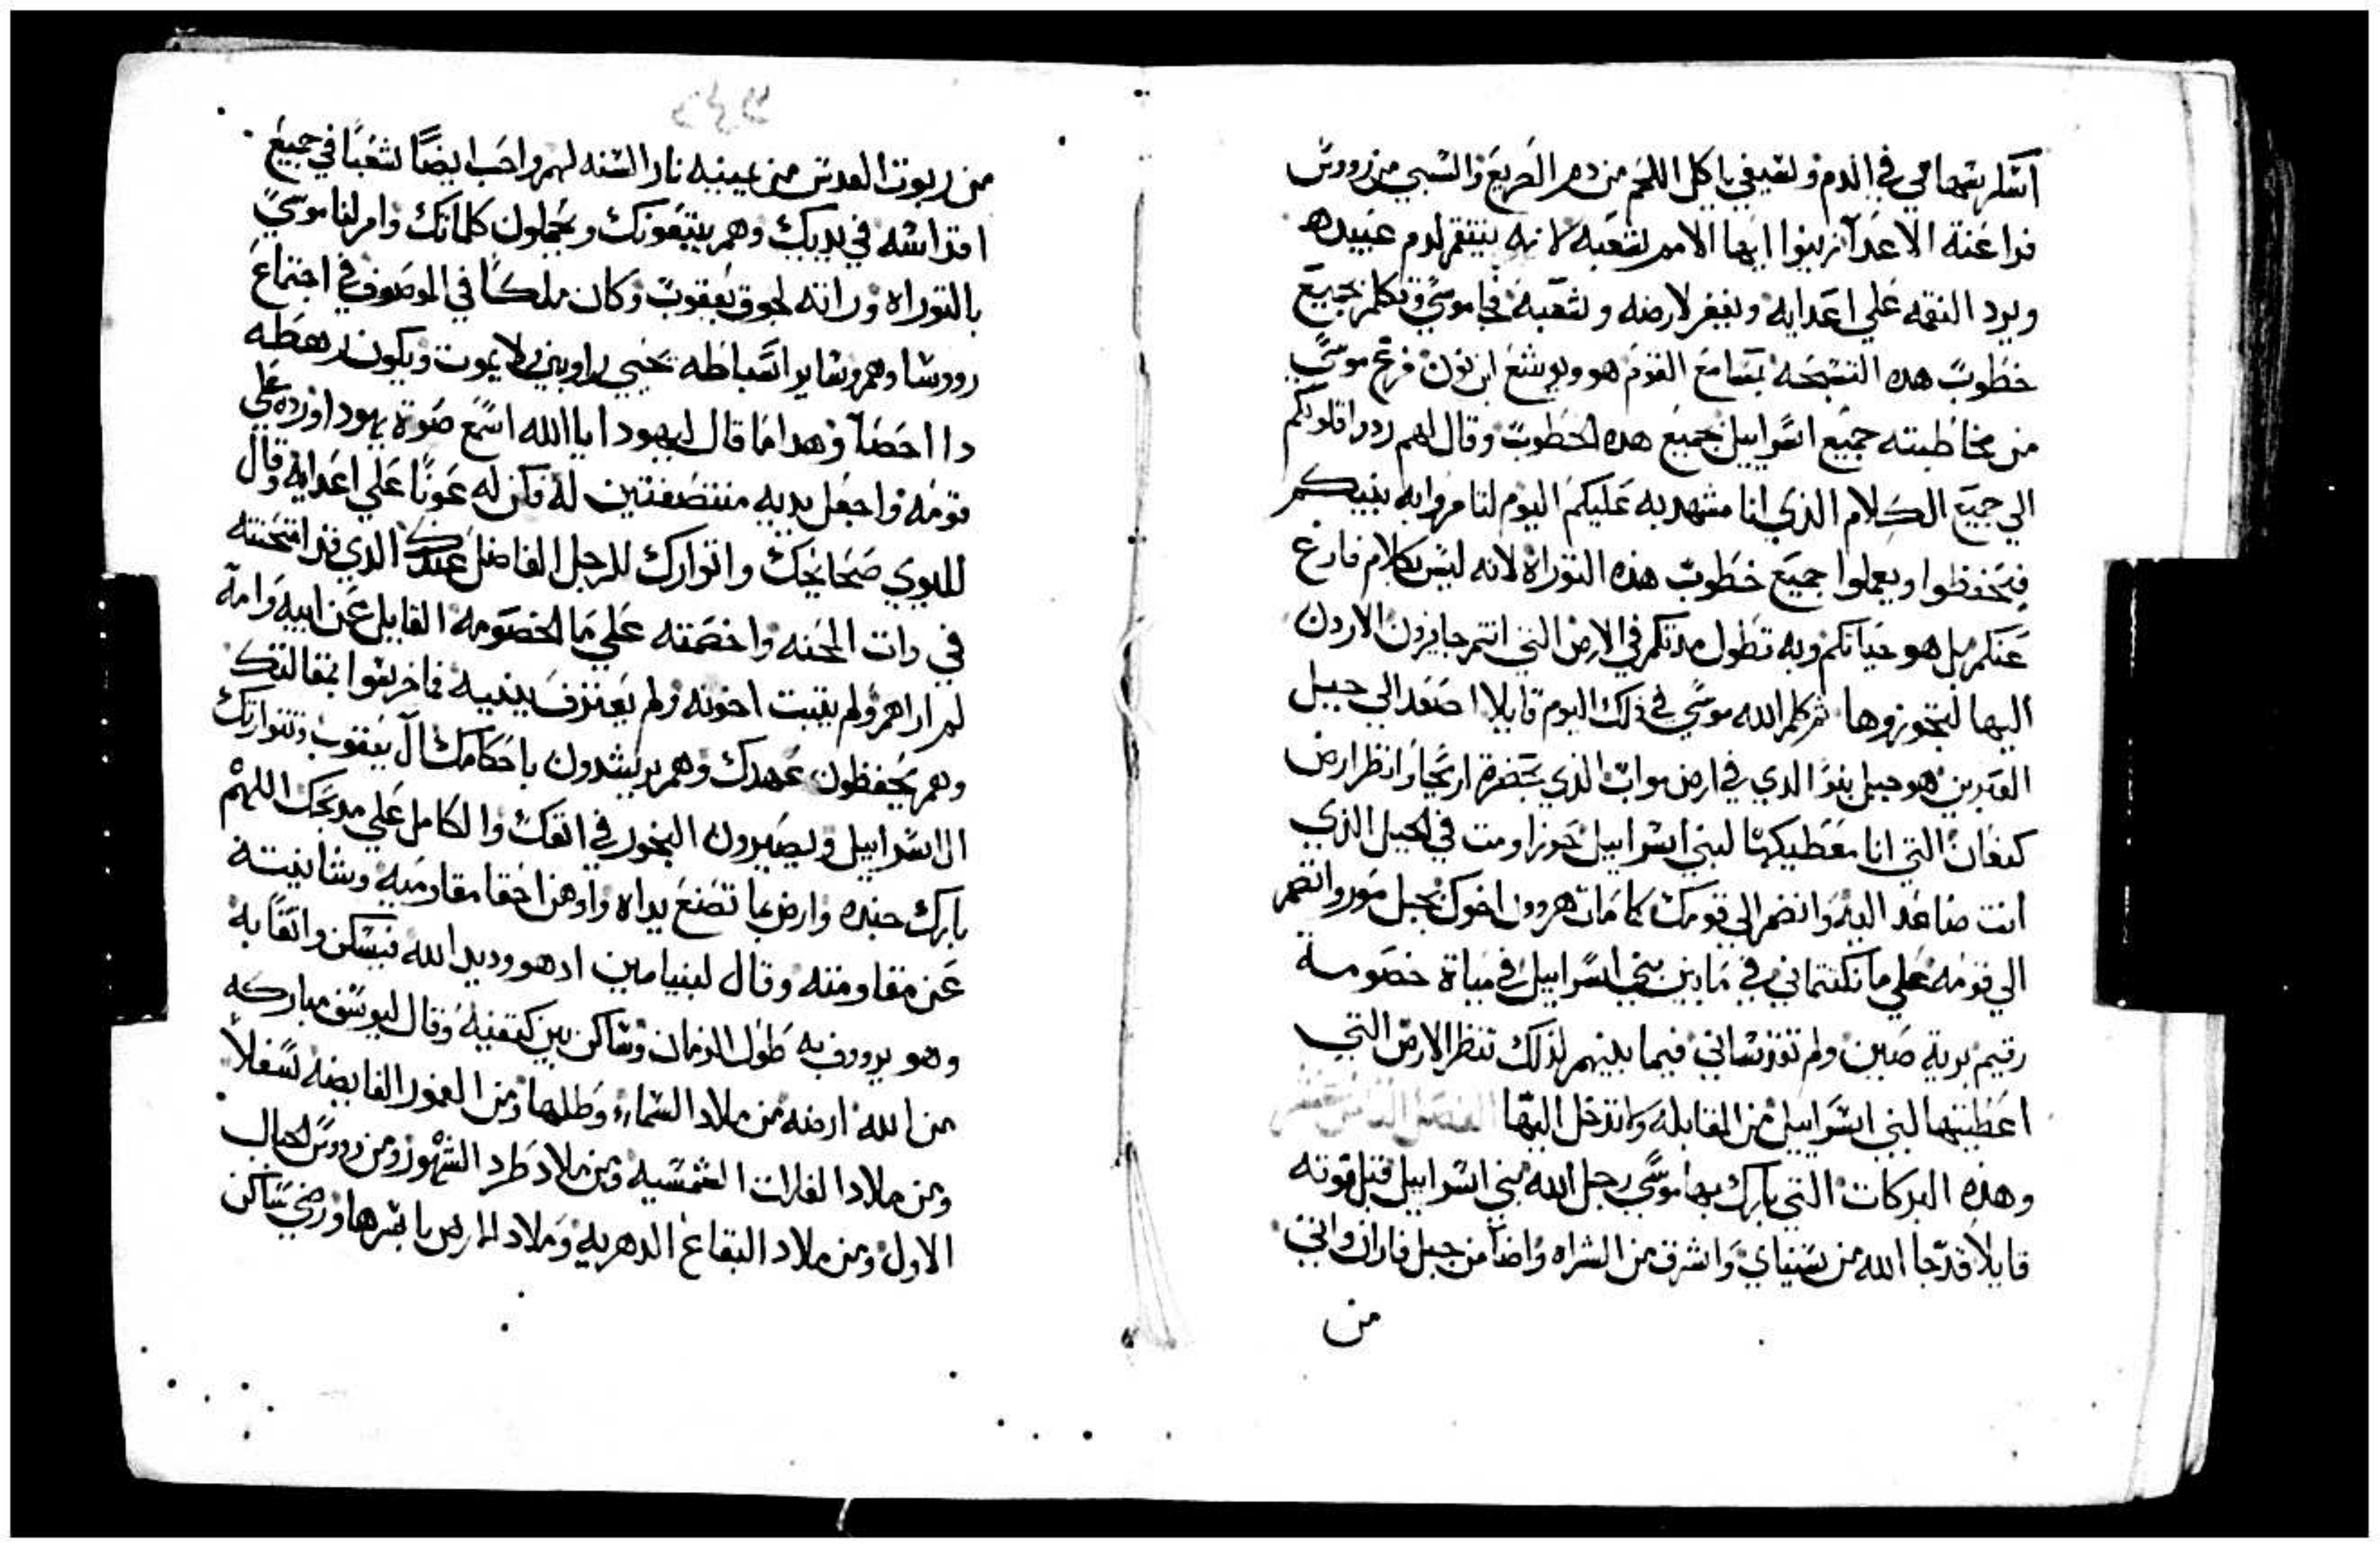 اسكر سهامي في الدم وسيفي ياكل اللحم من دم الصريع والسبي من رووس
فراعنة الاعدا زينوا ايها الامم شعبه لانه ينتقم لدم عبيده
ويرد النقمه علي اعدايه ويغفر لارضه ولشعبه فجا موسي وتكلم بجميع
خطوب هده التسبحه بمسامع القوم هو ويوشع ابن نون فرغ موسي
من مخاطبته جميع اسراييل بجميع هده الخطوب وقال لهم ردوا قلوبكم
الي جميع الكلام الذي انا مشهد به عليكم اليوم لتامروا به بنيكم
فيحفظوا ويعملوا جميع خطوب هذه التوراة لانه ليس بكلام فارغ
عنكم بل هو حياتكم وبه تطول مدتكم في الارض التي انتم جايزون الاردن
اليها لتحوزوها ثم كلم الله موسي في ذلك اليوم قايلا اصعد الي جبل
العبرين هو جبل نبو الدي في ارض مواب الذي بحضرة اريحا وانظر ارض
كنعان التي انا معطيكها لبني اسراييل حوزا ومت في الجبل الذي
انت صاعد اليه وانضم الي قومك كما مات هرون اخوك بجبل هور وانضم
الي قومه علي ما نكثتماني في ما بين بني اسراييل في مياة خصومة
رقيم برية صين ولم تقدساني فيما بينهم لذلك تنظر الارض التي
اعطيتها لبني اسراييل من المقابله ولا تدخل اليها
وهذه البركات التي بارك بها موسي رجل الله بني اسراييل قبل موته
قايلا قد جا الله من سيناي واشرق من الشراه واضا من جبل فاران واتي
من
من ربوت القدس من يمينه نارا لسنه لهم واحب ايضا شعبا في جميع
اقداسه في يديك وهم يتبعونك ويحملون كلماتك وامر لنا موسي
بالتوراه وراثة لجوق يعقوب وكان ملكا في الموصوف في اجتماع
رووسا وهم وساير اسباطه يحيي راوبين لا يموت ويكون رهطه
دا احصا وهدا ما قال ليهودا يا الله اسمع صوة يهودا ورده علي
قومه واجعل يديه منتصفتين له فكن له عونا علي اعدايه وقال
لليوي صحايحك وانوارك للرجل الفاضل عندك الدي قد امتحنته
في دات المحنه واخصمته علي ما الخصومه القايل عن ابيه وامه
لم اراهم ولم يثبت اخوته ولم يعترف ببنيه فاخريتوا بمقالتك
وهم يحفظون عهدك وهم يرشدون باحكامك ال يعقوب وتوراتك
ال اسراييل ويصيرون البخور في انفك والكامل علي مدبحك اللهم
بارك جنده وارض بما تصنع يداه واوهن احقا مقاوميه وشانيته
عن مقاومته وقال لبنيامين اد هو وديد الله فيسكن واثقا به
وهو يروف به طول الزمان وساكن بين كتفيه وقال ليوسف مباركه
من الله ارضه من ملاد السماء وطلها ومن الغمور الفايضه سفلا
ومن ملاد الغلات الشمسيه ومن ملاد طرد الشهور ومن رووس الجبال
الاول ومن ملاد البقاع الدهريه وملاد الارض باسرها ورضي ساكن